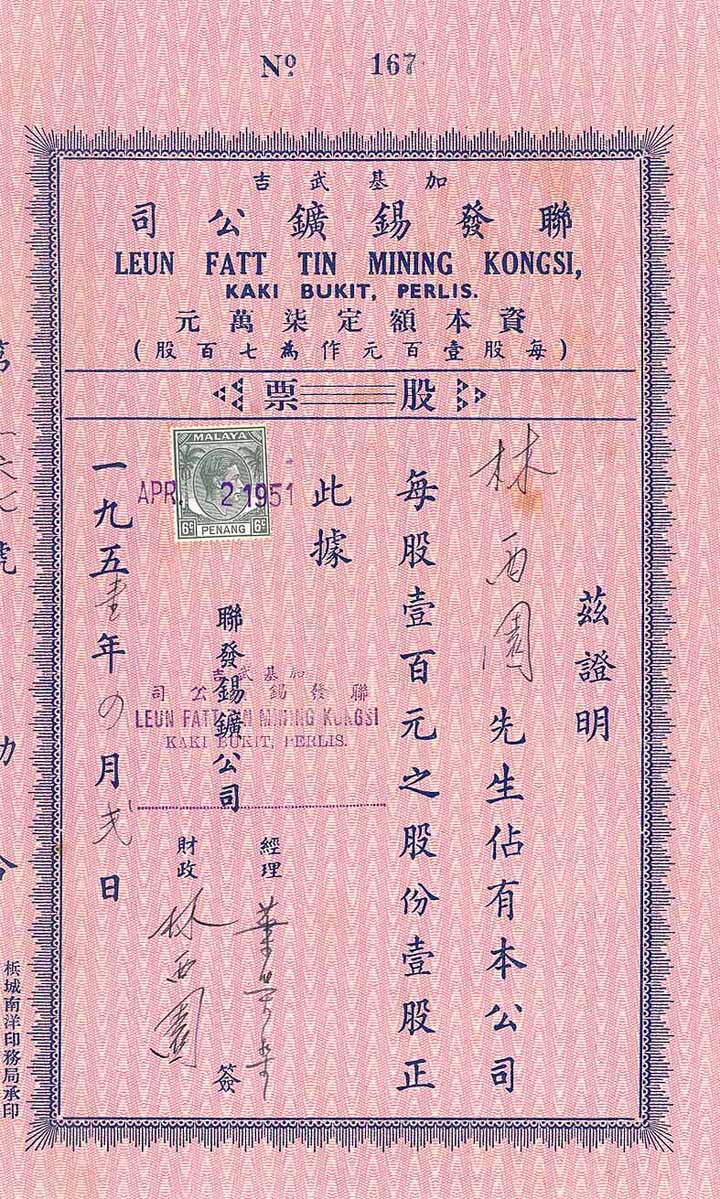 Nº 167
加基武吉
聯發錫鑛公司
LEUN FATT TIN MINING KONGSI,
KAKI BUKIT, PERLIS.
資本額定柒萬元
(每股壹百元作為七百股)
股票
茲證明
林西園先生佔有本公司
每股壹百元之股份壹股正
此據
MALAYA
6c PENANG 6c
APR. 2 1951
聯發錫鑛公司
加基武吉
聯發錫鑛公司
LEUN FATT TIN MINING KONGSI
KAKI BUKIT, PERLIS.
經理
財政 林西園
簽
一九五壹年四月弍日
第一六七號
梹城南洋印務局承印